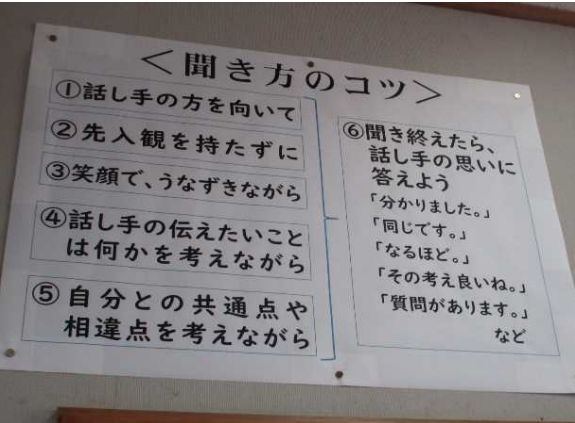 ＜聞き方のコツ＞
①話し手の方を向いて
②先入観を持たずに
③笑顔で、うなずきながら
④話し手の伝えたいこと
は何かを考えながら
⑤自分との共通点や
相違点を考えながら
⑥聞き終えたら、
話し手の思いに
答えよう
「分かりました。」
「同じです。」
「なるほど。」
「その考え良いね。」
「質問があります。」
など